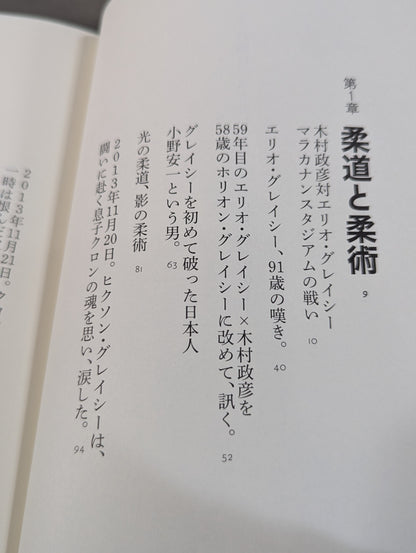 第1章
柔道と柔術
9
木村政彦対エリオ・グレイシー
マラカナンスタジアムの戦い
10
エリオ・グレイシー、91歳の嘆き。
40
59年目のエリオ・グレイシー×木村政彦を
58歳のホリオン・グレイシーに改めて、訊く。
52
グレイシーを初めて破った日本人
小野安一という男。
63
光の柔道、影の柔術
81
2013年11月20日。ヒクソン・グレイシーは、
闘いに赴く息子クロンの魂を思い、涙した。
94
2013年11月21日。ク
一時は恨んだ